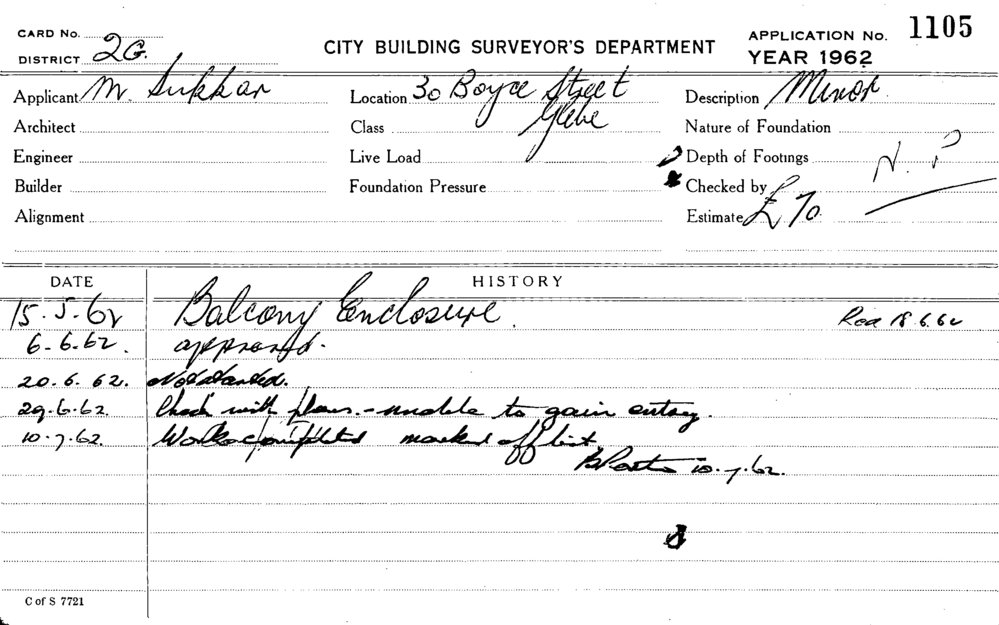 CARD No.
DISTRICT 2G.
CITY BUILDING SURVEYOR'S DEPARTMENT
APPLICATION No. 1105
YEAR 1962
Applicant M. Sukkar
Location 30 Boyce Street
Glebe
Description Minor
Architect
Class
Nature of Foundation
Engineer
Live Load
Depth of Footings
N. P
Builder
Foundation Pressure
Checked by
Alignment
Estimate £70
DATE
HISTORY
15.5.62 Balcony Enclosure. Rec 18.6.62
6.6.62. approved.
20.6.62. Not started.
29.6.62. Check with plans. - unable to gain entry.
10.7.62. Work completed marked off list
10.7.62.
C of S 7721